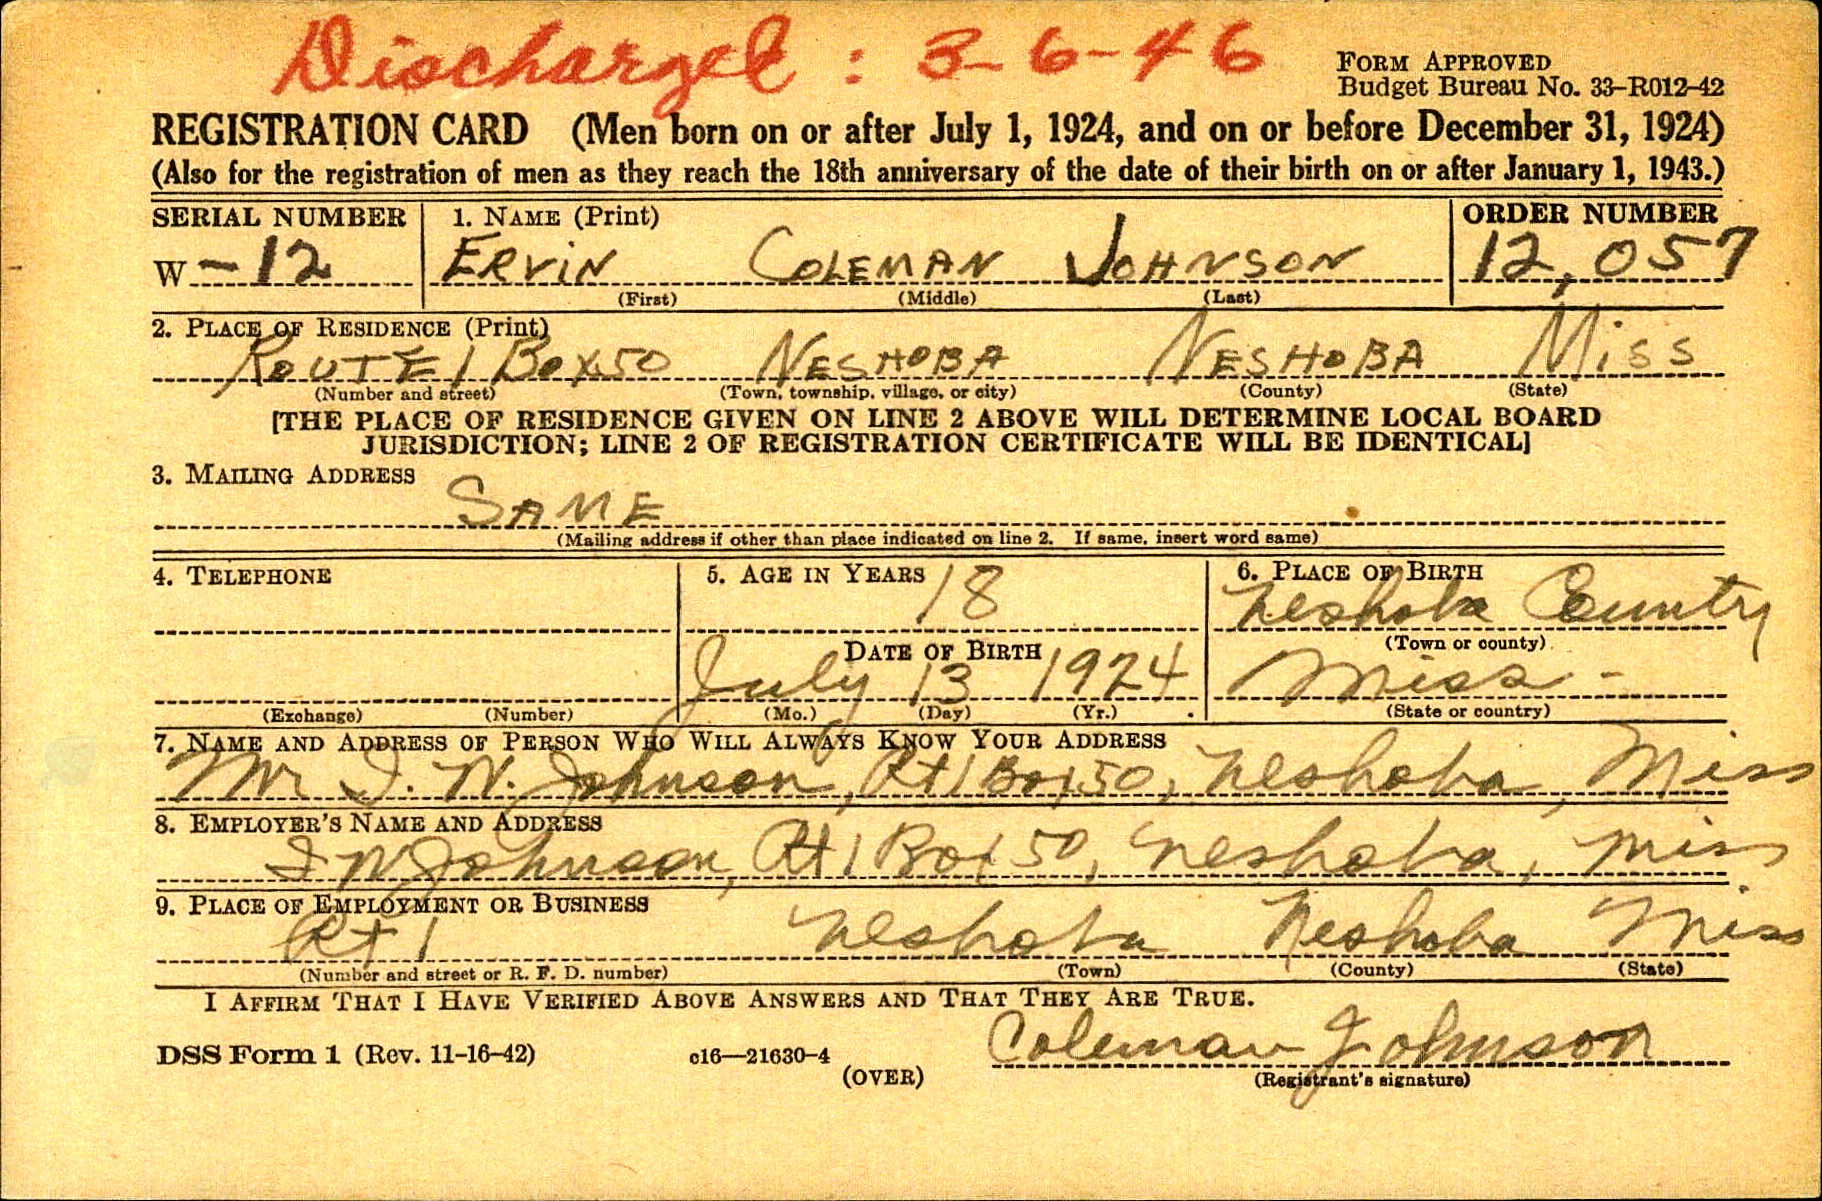 Discharged : 3-6-46
FORM APPROVED
Budget Bureau No. 33–R012–42
REGISTRATION CARD (Men born on or after July 1, 1924, and on or before December 31, 1924)
(Also for the registration of men as they reach the 18th anniversary of the date of their birth on or after January 1, 1943.)
SERIAL NUMBER 1. NAME (Print) ORDER NUMBER
W - 12 ERVIN COLEMAN JOHNSON 12,057
(First) (Middle) (Last)
2. PLACE OF RESIDENCE (Print)
ROUTE 1 BOX 50 NESHOBA NESHOBA MISS
(Number and street) (Town, township, village, or city) (County) (State)
[THE PLACE OF RESIDENCE GIVEN ON LINE 2 ABOVE WILL DETERMINE LOCAL BOARD
JURISDICTION; LINE 2 OF REGISTRATION CERTIFICATE WILL BE IDENTICAL]
3. MAILING ADDRESS
SAME
(Mailing address if other than place indicated on line 2. If same, insert word same)
4. TELEPHONE 5. AGE IN YEARS 6. PLACE OF BIRTH
18 Neshoba County
DATE OF BIRTH (Town or county)
July 13 1924 Miss -
(Exchange) (Number) (Mo.) (Day) (Yr.) (State or country)
7. NAME AND ADDRESS OF PERSON WHO WILL ALWAYS KNOW YOUR ADDRESS
Mr I. W. Johnson, Rt 1 Box 50, Neshoba, Miss
8. EMPLOYER'S NAME AND ADDRESS
I W Johnson, Rt 1 Box 50, Neshoba, Miss
9. PLACE OF EMPLOYMENT OR BUSINESS
Rt 1 Neshoba Neshoba Miss
(Number and street or R. F. D. number) (Town) (County) (State)
I AFFIRM THAT I HAVE VERIFIED ABOVE ANSWERS AND THAT THEY ARE TRUE.
Coleman Johnson
DSS Form 1 (Rev. 11–16–42) c16—21630–4
(OVER) (Registrant's signature)